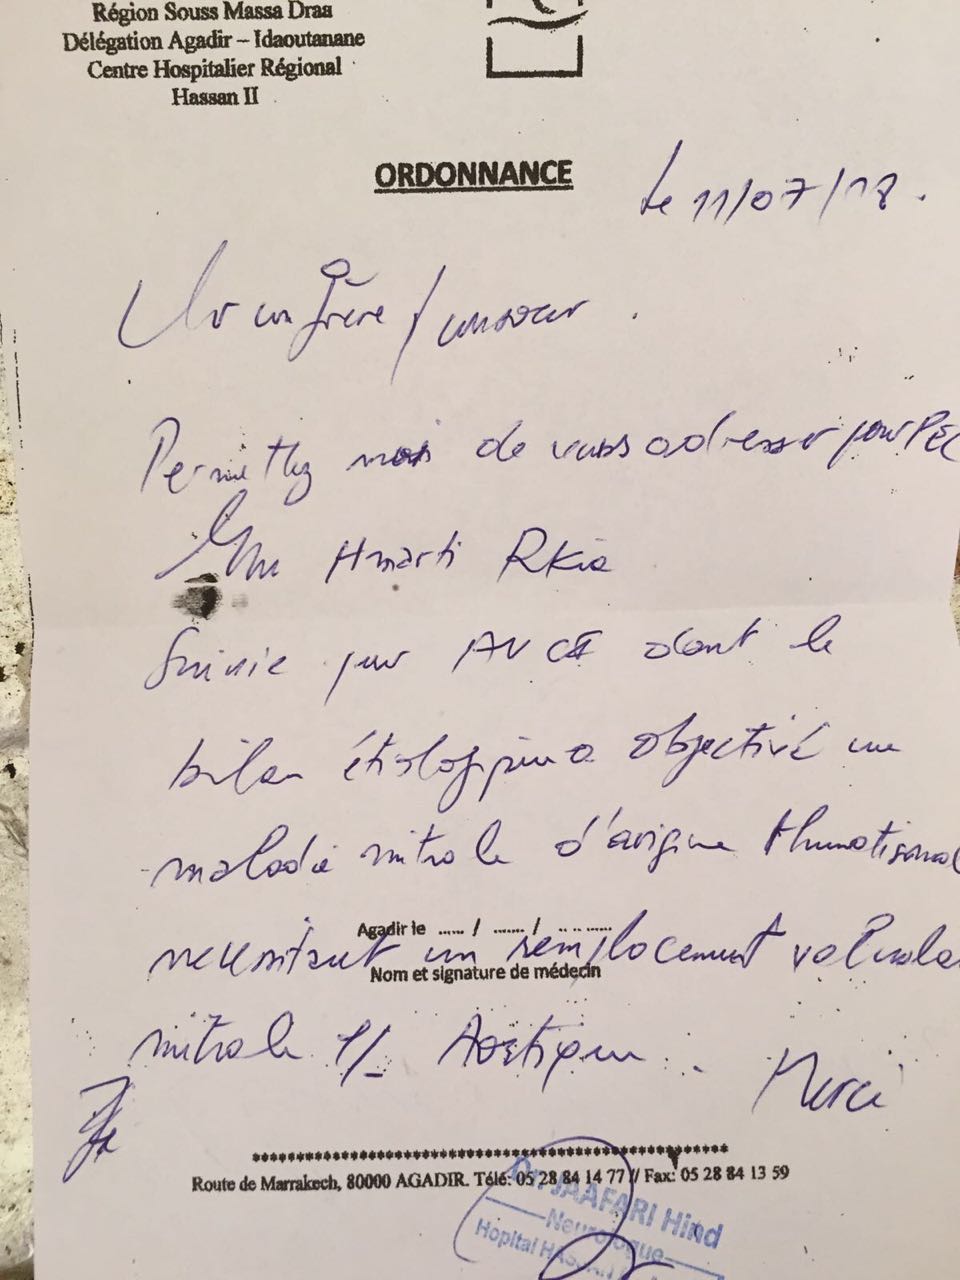 Région Souss Massa Draa
Délégation Agadir – Idaoutanane
Centre Hospitalier Régional
Hassan II
ORDONNANCE
Le 11/07/18.
confrère / consoeur.
Permettez moi de vous adresser pour PEC
Mme Hmarti Rkia
Suivie pour AVCI dont le
bilan étiologique a objectivé un
maladie mitrale d'origine rhumatismal
Agadir le ...... / ...... / .. .. ......
nécessitant un remplacement valvula
Nom et signature de médecin
mitrale +/- Aortique.
Merci
Route de Marrakech, 80000 AGADIR. Télé: 05 28 84 14 77 // Fax: 05 28 84 13 59
Dr. JAAFARI Hind
Neurologue
Hopital HASSAN